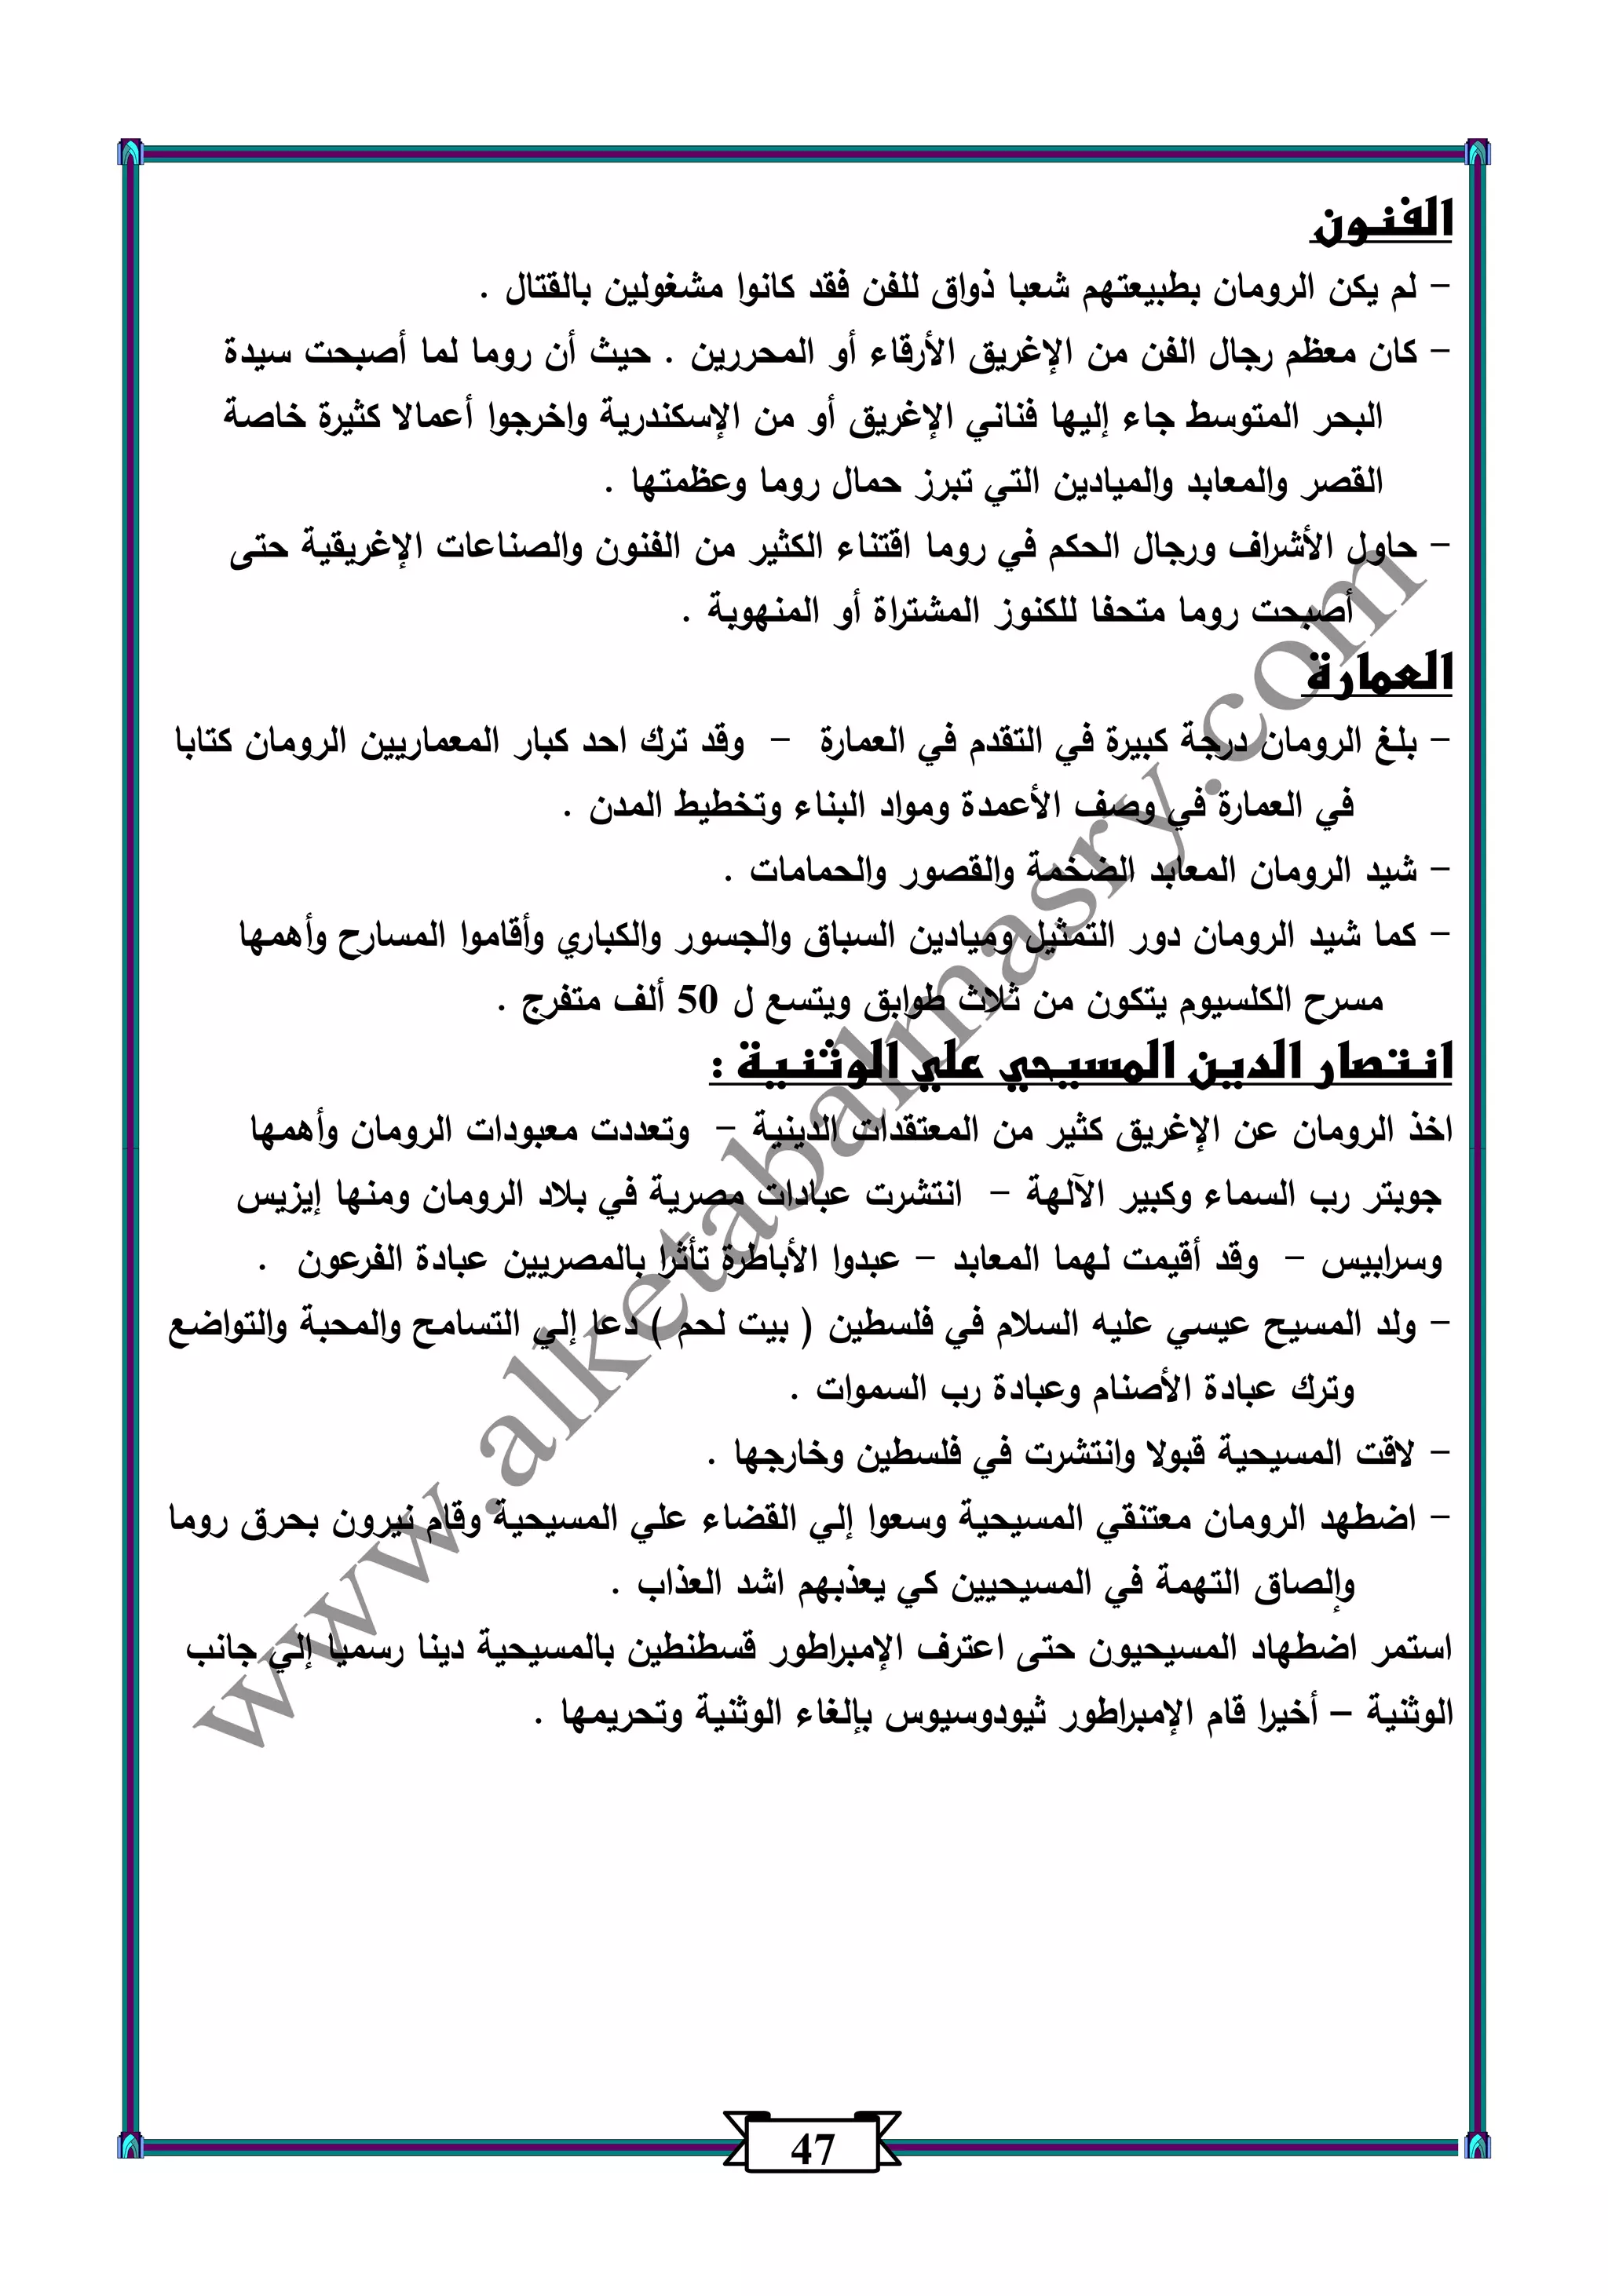 الفنون
- لم يكن الرومان بطبيعتهم شعبا ذواق للفن فقد كانوا مشغولين بالقتال .
- كان معظم رجال الفن من الإغريق الأرقاء أو المحررين . حيث أن روما لما أصبحت سيدة
البحر المتوسط جاء إليها فناني الإغريق أو من الإسكندرية واخرجوا أعمالا كثيرة خاصة
القصر والمعابد والميادين التي تبرز حمال روما وعظمتها .
- حاول الأشراف ورجال الحكم في روما اقتناء الكثير من الفنون والصناعات الإغريقية حتى
أصبحت روما متحفا للكنوز المشتراة أو المنهوبة .
العمارة
- بلغ الرومان درجة كبيرة في التقدم في العمارة - وقد ترك احد كبار المعماريين الرومان كتابا
في العمارة في وصف الأعمدة ومواد البناء وتخطيط المدن .
- شيد الرومان المعابد الضخمة والقصور والحمامات .
- كما شيد الرومان دور التمثيل وميادين السباق والجسور والكباري وأقاموا المسارح وأهمها
مسرح الكلسيوم يتكون من ثلاث طوابق ويتسع ل 50 ألف متفرج .
انتصار الدين المسيحي علي الوثنية :
اخذ الرومان عن الإغريق كثير من المعتقدات الدينية - وتعددت معبودات الرومان وأهمها
جوبتر رب السماء وكبير الآلهة - انتشرت عبادات مصرية في بلاد الرومان ومنها إيزيس
وسرابيس - وقد أقيمت لهما المعابد - عبدوا الأباطرة تأثرا بالمصريين عبادة الفرعون .
- ولد المسيح عيسي عليه السلام في فلسطين ( بيت لحم ) دعا إلي التسامح والمحبة والتواضع
وترك عبادة الأصنام وعبادة رب السموات .
- لاقت المسيحية قبولا وانتشرت في فلسطين وخارجها .
- اضطهد الرومان معتنقي المسيحية وسعوا إلي القضاء علي المسيحية وقام نيرون بحرق روما
وإلصاق التهمة في المسيحيين كي يعذبهم اشد العذاب .
استمر اضطهاد المسيحيون حتى اعترف الإمبراطور قسطنطين بالمسيحية دينا رسميا إلي جانب
الوثنية – أخيرا قام الإمبراطور ثيودوسيوس بإلغاء الوثنية وتحريمها .
www.alketabalmasry.com
47